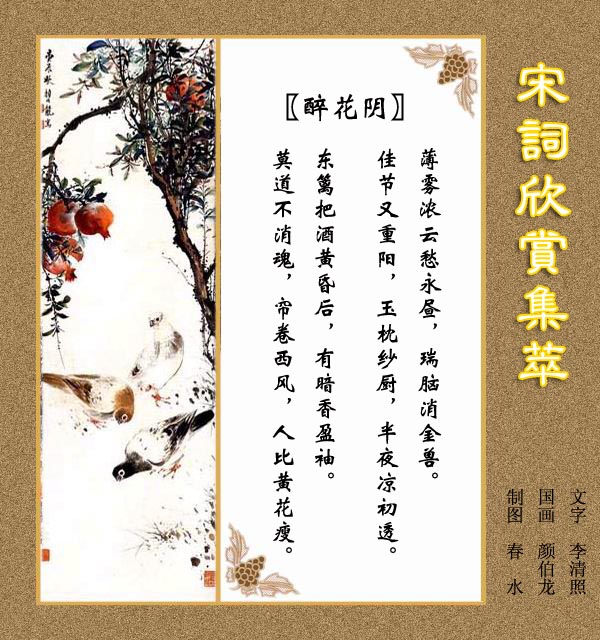 宋詞欣賞集萃
〖醉花阴〗
薄雾浓云愁永昼，瑞脑消金兽。
佳节又重阳，玉枕纱厨，半夜凉初透。
东篱把酒黄昏后，有暗香盈袖。
莫道不消魂，帘卷西风，人比黄花瘦。
文字 李清照
国画 颜伯龙
制图 春水